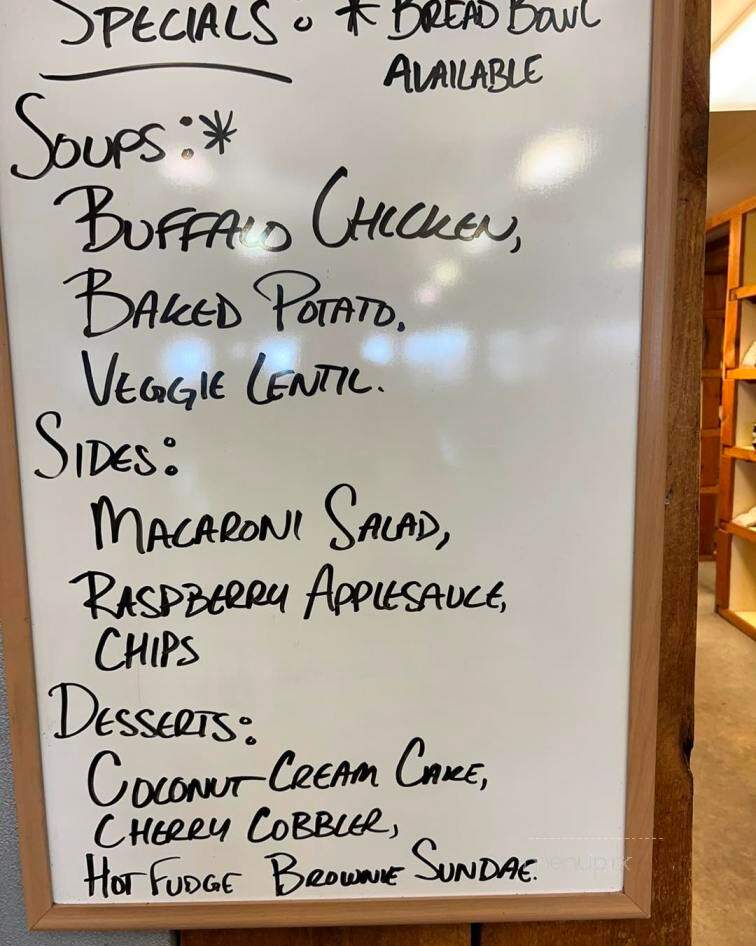 SPECIALS: * BREAD BOWL
AVAILABLE
SOUPS:*
BUFFALO CHICKEN,
BAKED POTATO,
VEGGIE LENTIL.
SIDES:
MACARONI SALAD,
RASPBERRY APPLESAUCE,
CHIPS
DESSERTS:
COCONUT CREAM CAKE,
CHERRY COBBLER,
HOT FUDGE BROWNIE SUNDAE.